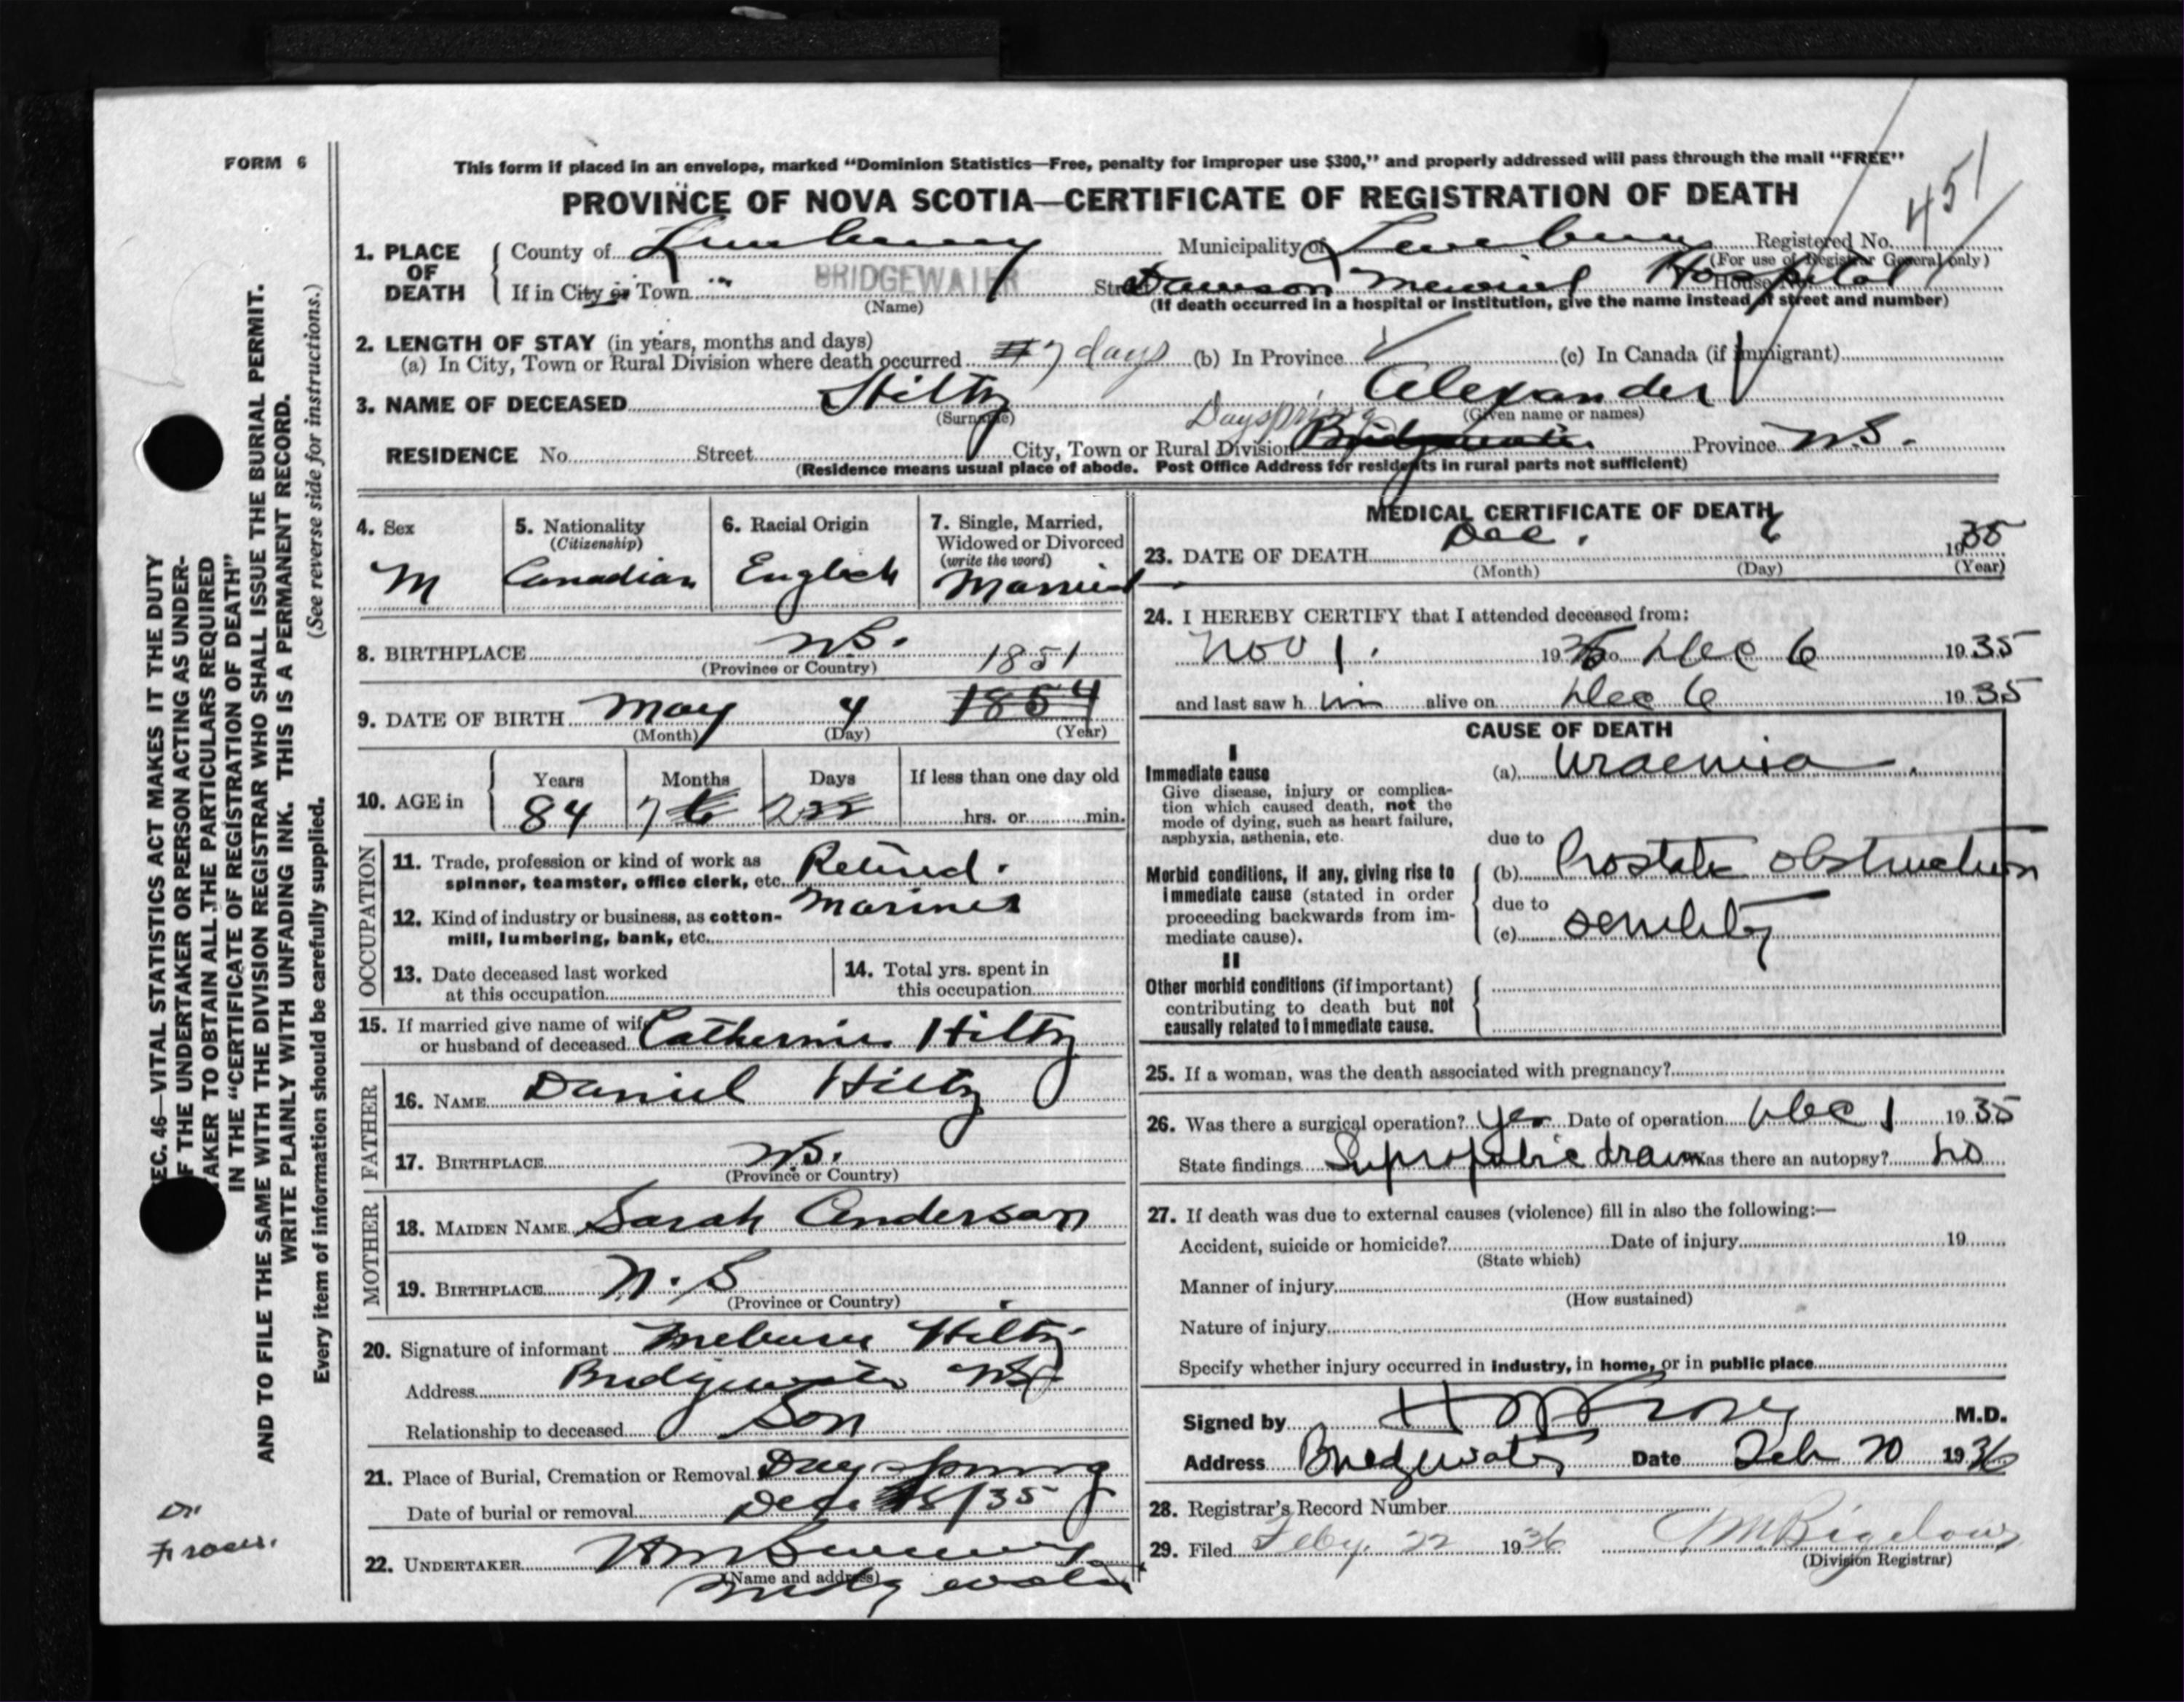 FORM 6
This form if placed in an envelope, marked “Dominion Statistics—Free, penalty for improper use $300,” and properly addressed will pass through the mail “FREE”
PROVINCE OF NOVA SCOTIA—CERTIFICATE OF REGISTRATION OF DEATH
451
1. PLACE OF DEATH
County of Lunenburg Municipality of Lunenburg Registered No.
(For use of Registrar General only)
If in City or Town BRIDGEWATER Street Dawson Memorial Hospital House No.
(Name) (If death occurred in a hospital or institution, give the name instead of street and number)
2. LENGTH OF STAY (in years, months and days)
(a) In City, Town or Rural Division where death occurred 7 days (b) In Province (c) In Canada (if immigrant)
3. NAME OF DECEASED Hiltz Alexander
(Surname) (Given name or names)
Dayspring
RESIDENCE No. Street City, Town or Rural Division Bridgewater Province N.S.
(Residence means usual place of abode. Post Office Address for residents in rural parts not sufficient)
4. Sex
M
5. Nationality
(Citizenship)
Canadian
6. Racial Origin
English
7. Single, Married,
Widowed or Divorced
(write the word)
Married
8. BIRTHPLACE N.S.
(Province or Country)
1851
9. DATE OF BIRTH May 4 1854
(Month) (Day) (Year)
10. AGE in
Years Months Days If less than one day old
84 7 2 hrs. or min.
OCCUPATION
11. Trade, profession or kind of work as
spinner, teamster, office clerk, etc. Retired.
12. Kind of industry or business, as cotton-
mill, lumbering, bank, etc. Mariner
13. Date deceased last worked
at this occupation
14. Total yrs. spent in
this occupation
15. If married give name of wife
or husband of deceased Catherine Hiltz
FATHER
16. NAME Daniel Hiltz
17. BIRTHPLACE N.S.
(Province or Country)
MOTHER
18. MAIDEN NAME Sarah Anderson
19. BIRTHPLACE N.S
(Province or Country)
20. Signature of informant Hiltz
Address Bridgewater NS
Relationship to deceased Son
21. Place of Burial, Cremation or Removal Dayspring
Date of burial or removal Dec 8/35
22. UNDERTAKER
(Name and address)
Bridgewater
MEDICAL CERTIFICATE OF DEATH
23. DATE OF DEATH Dec. 6 1935
(Month) (Day) (Year)
24. I HEREBY CERTIFY that I attended deceased from:
Nov 1. 1935 to Dec 6 1935
and last saw him alive on Dec 6 1935
CAUSE OF DEATH
I
Immediate cause
Give disease, injury or complica-
tion which caused death, not the
mode of dying, such as heart failure,
asphyxia, asthenia, etc.
(a) Uraemia
due to
Morbid conditions, if any, giving rise to
immediate cause (stated in order
proceeding backwards from im-
mediate cause).
(b) Prostate obstruction
due to
(c) senility
II
Other morbid conditions (if important)
contributing to death but not
causally related to immediate cause.
25. If a woman, was the death associated with pregnancy?
26. Was there a surgical operation? Yes Date of operation Dec 1 1935
State findings Suprapubic drain Was there an autopsy? No
27. If death was due to external causes (violence) fill in also the following:—
Accident, suicide or homicide? Date of injury 19
(State which)
Manner of injury
(How sustained)
Nature of injury
Specify whether injury occurred in industry, in home, or in public place
Signed by M.D.
Address Bridgewater Date Feb 20 1936
28. Registrar's Record Number
29. Filed Feby. 22 1936 Bigelow
(Division Registrar)
SEC. 46—VITAL STATISTICS ACT MAKES IT THE DUTY
OF THE UNDERTAKER OR PERSON ACTING AS UNDER-
TAKER TO OBTAIN ALL THE PARTICULARS REQUIRED
IN THE “CERTIFICATE OF REGISTRATION OF DEATH”
AND TO FILE THE SAME WITH THE DIVISION REGISTRAR WHO SHALL ISSUE THE BURIAL PERMIT.
WRITE PLAINLY WITH UNFADING INK. THIS IS A PERMANENT RECORD.
Every item of information should be carefully supplied. (See reverse side for instructions.)
Dr.